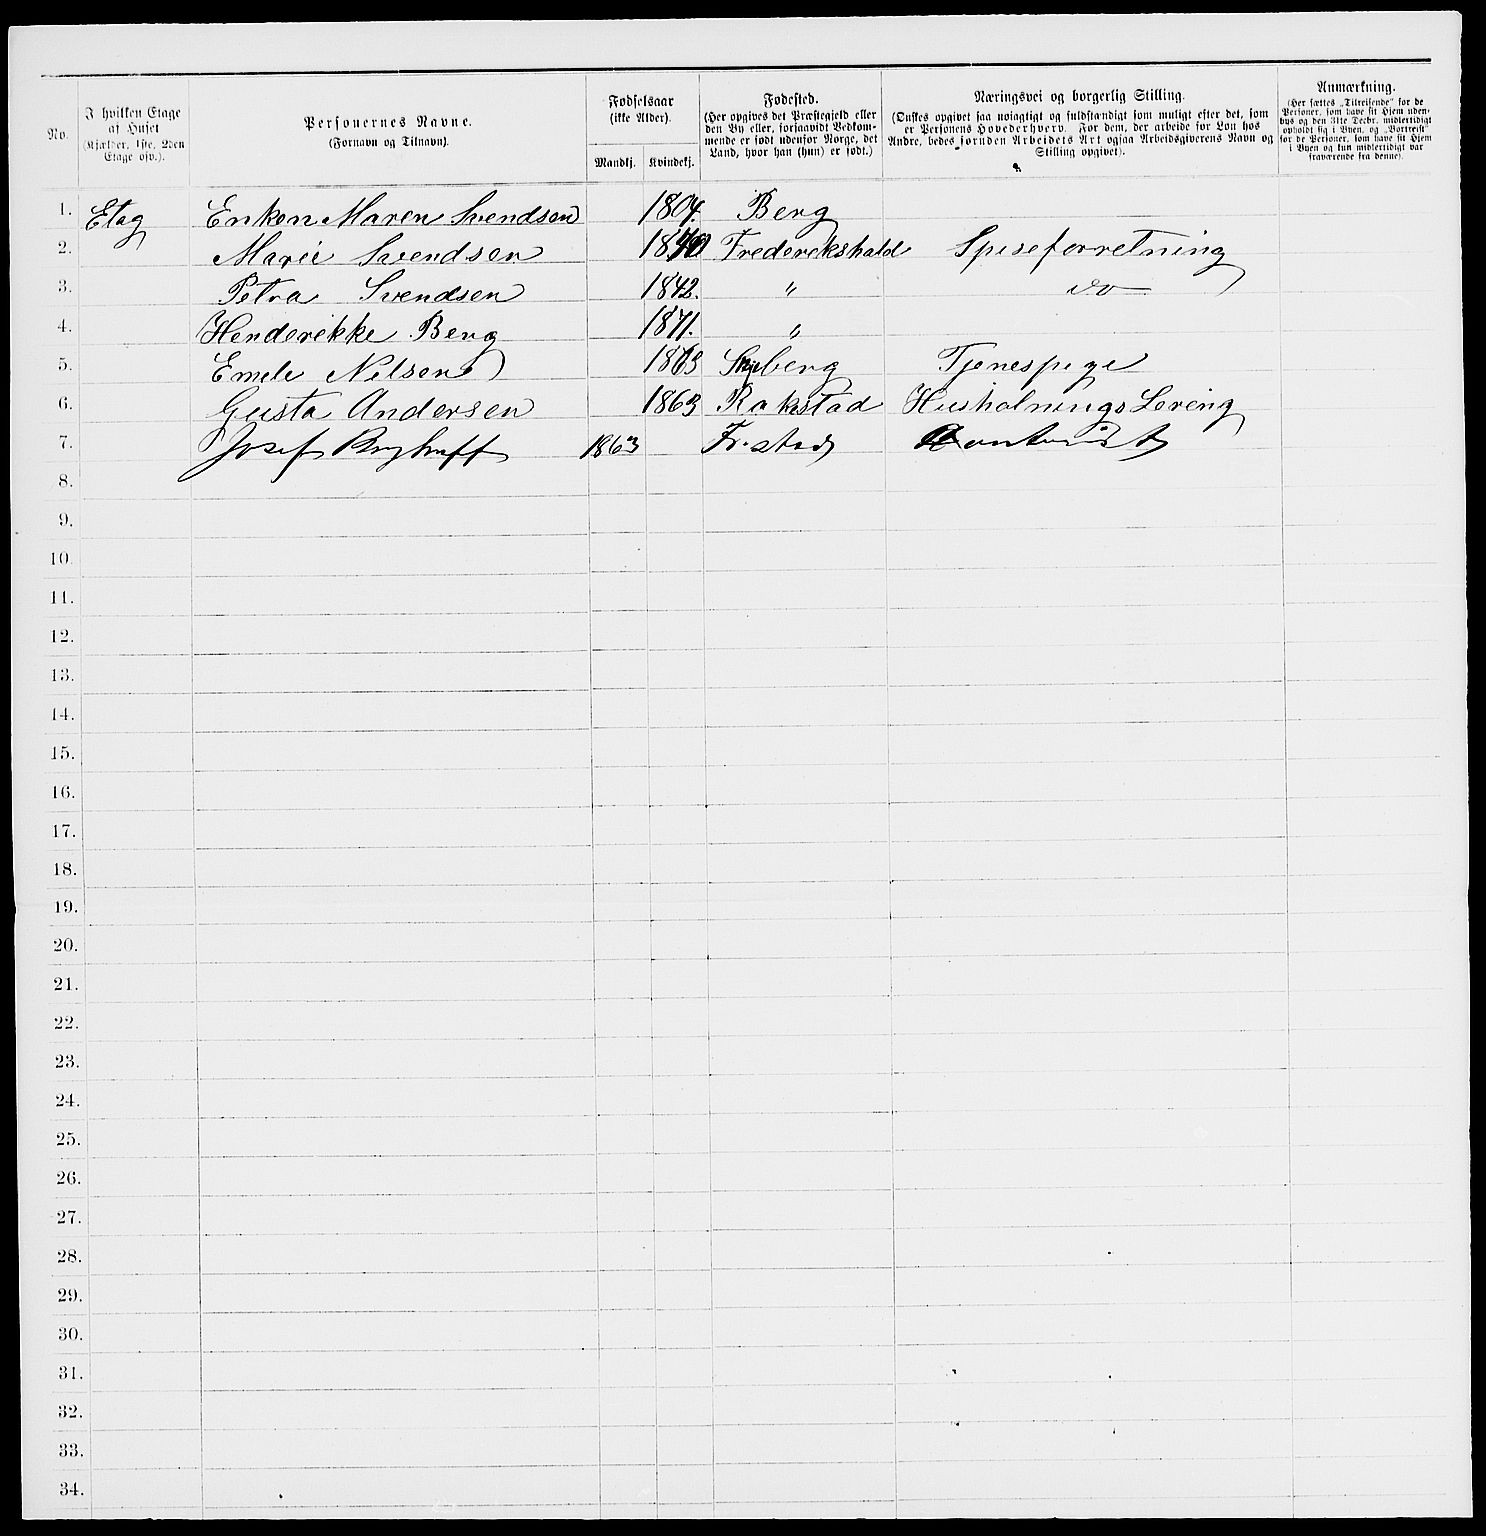 No.
I hvilken Etage af Huset (Kjælder, 1ste, 2den Etage osv.).
Personernes Navne.
(Fornavn og Tilnavn).
Fødselsaar
(ikke Alder).
Mandkj. Kvindekj.
Fødested.
(Her opgives det Præstegjeld eller
den By eller, forsaavidt Vedkom-
mende er født udenfor Norge, det
Land, hvor han (hun) er født.)
Næringsvei og borgerlig Stilling.
(Ønskes opgivet saa nøiagtigt og fuldstændigt som muligt efter det, som
er Personens Hovederhverv. For dem, der arbeide for Løn hos
Andre, bedes foruden Arbeidets Art ogsaa Arbeidsgiverens Navn og
Stilling opgivet).
Anmærkning.
(Her sættes „Tilreisende“ for de
Personer, som have sit Hjem uden-
bys og den 31te Decbr. midlertidigt
opholdt sig i Byen, og „Bortreist“
for de Personer, som have sit Hjem
i Byen og kun midlertidigt var
fraværende fra denne).
1. Etag Enken Maren Svendsen 1804. Berg
2. Marie Svendsen 1840 Frederekshald Spiseforretning
3. Petra Svendsen 1842. " do
4. Henderekke Berg 1871. "
5. Emele Nelsen 1863 Skjeberg Tjenespige
6. Gusta Andersen 1863 Rakstad Husholnings Lering
7. Josef 1863 Fr.stad
8.
9.
10.
11.
12.
13.
14.
15.
16.
17.
18.
19.
20.
21.
22.
23.
24.
25.
26.
27.
28.
29.
30.
31.
32.
33.
34.